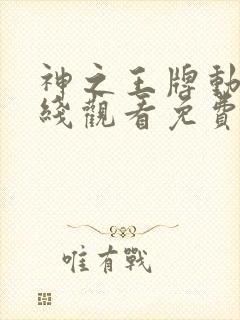 神之王牌動
綫觀看免費
唯有戰